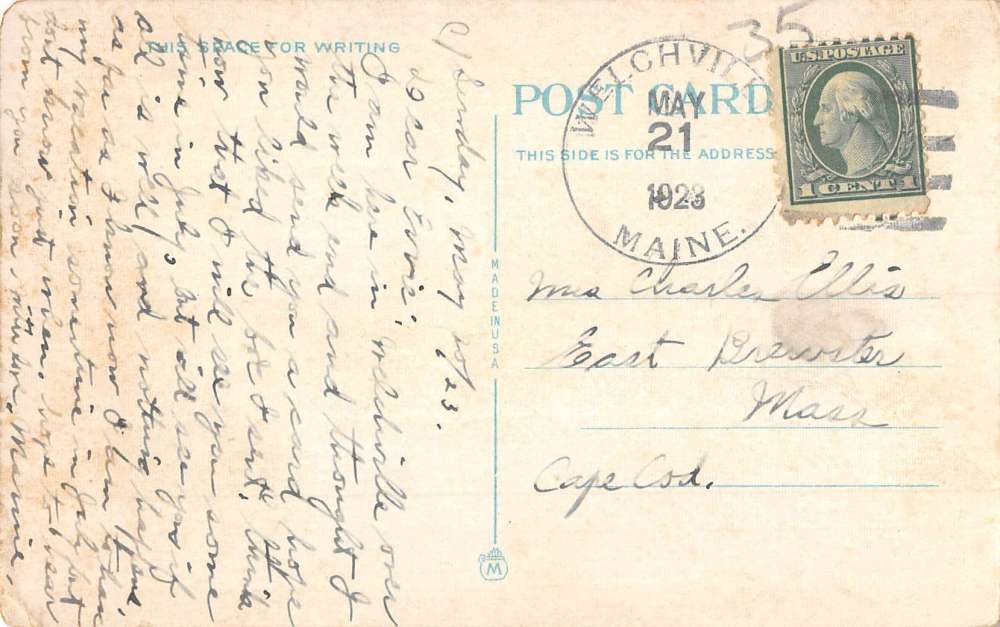 THIS SPACE FOR WRITING
Sunday, May 20/23.
Dear Evvie;
I am here in Welchville over
the week end and thought I
would send you a card hope
you liked the box I sent. think
now that I will see you some
time in July, but all see you if
all is well and nothing happens.
as far as I know now I am to have
my vacation sometime in July but
dont know just when. hope to hear
from you soon. Mamie.
POST CARD
THIS SIDE IS FOR THE ADDRESS
35
WELCHVILLE
MAY
21
1923
MAINE.
U.S. POSTAGE
1 CENT 1
MADE IN USA
M
Mrs Charles Ellis
East Brewster
Mass
Cape Cod.